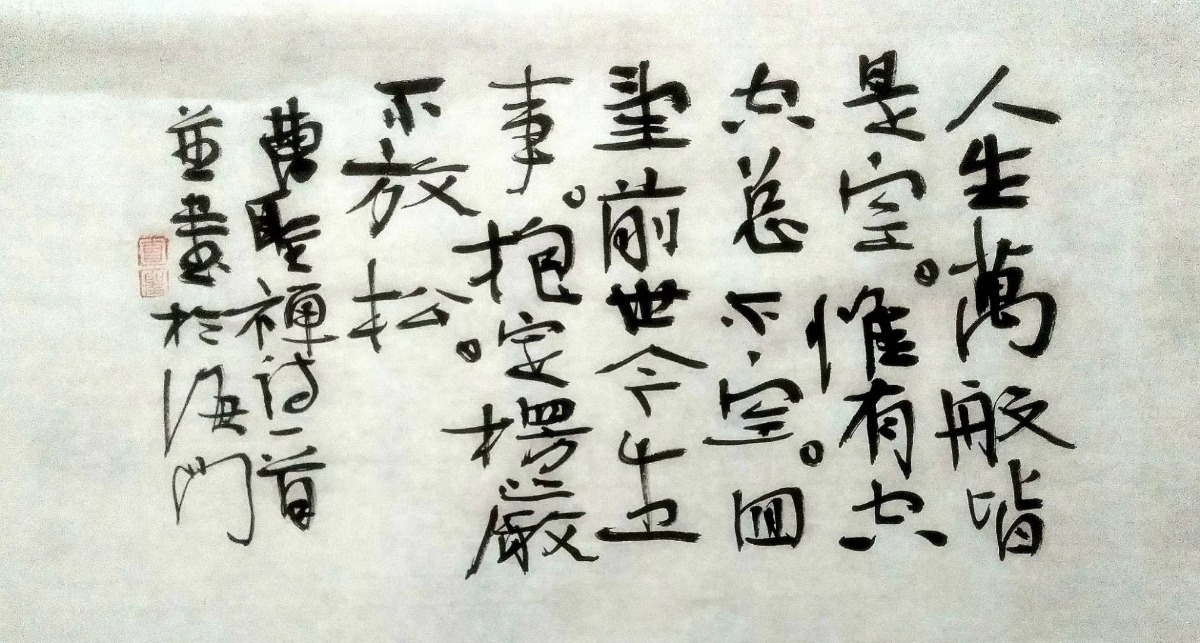 人生萬般皆
是空。惟有
总不空。回
望前世今生
事。抱定楞嚴
不放松。
曹聖禪诗一首
並書於海門